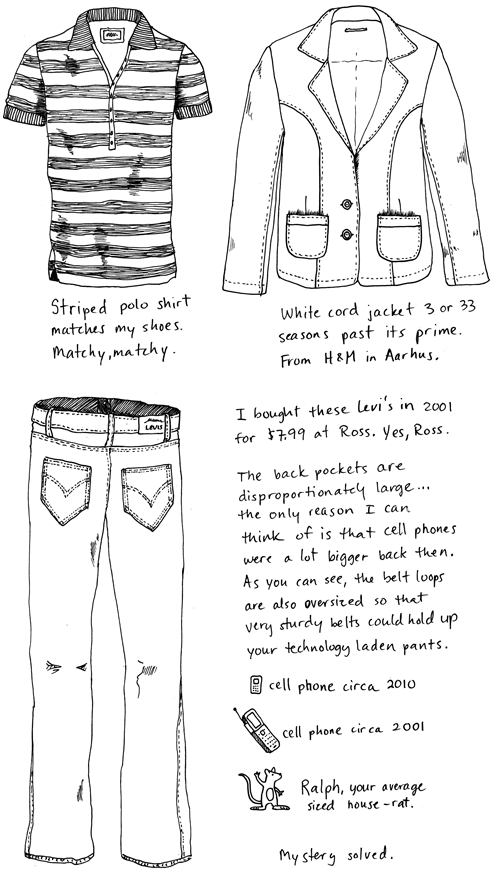 Striped polo shirt
matches my shoes.
Matchy, matchy.
White cord jacket 3 or 33
seasons past its prime.
From H&M in Aarhus.
LEVIS
I bought these Levi's in 2001
for $7.99 at Ross. Yes, Ross.
The back pockets are
disproportionately large...
the only reason I can
think of is that cell phones
were a lot bigger back then.
As you can see, the belt loops
are also oversized so that
very sturdy belts could hold up
your technology laden pants.
cell phone circa 2010
cell phone circa 2001
Ralph, your average
sized house-rat.
Mystery solved.